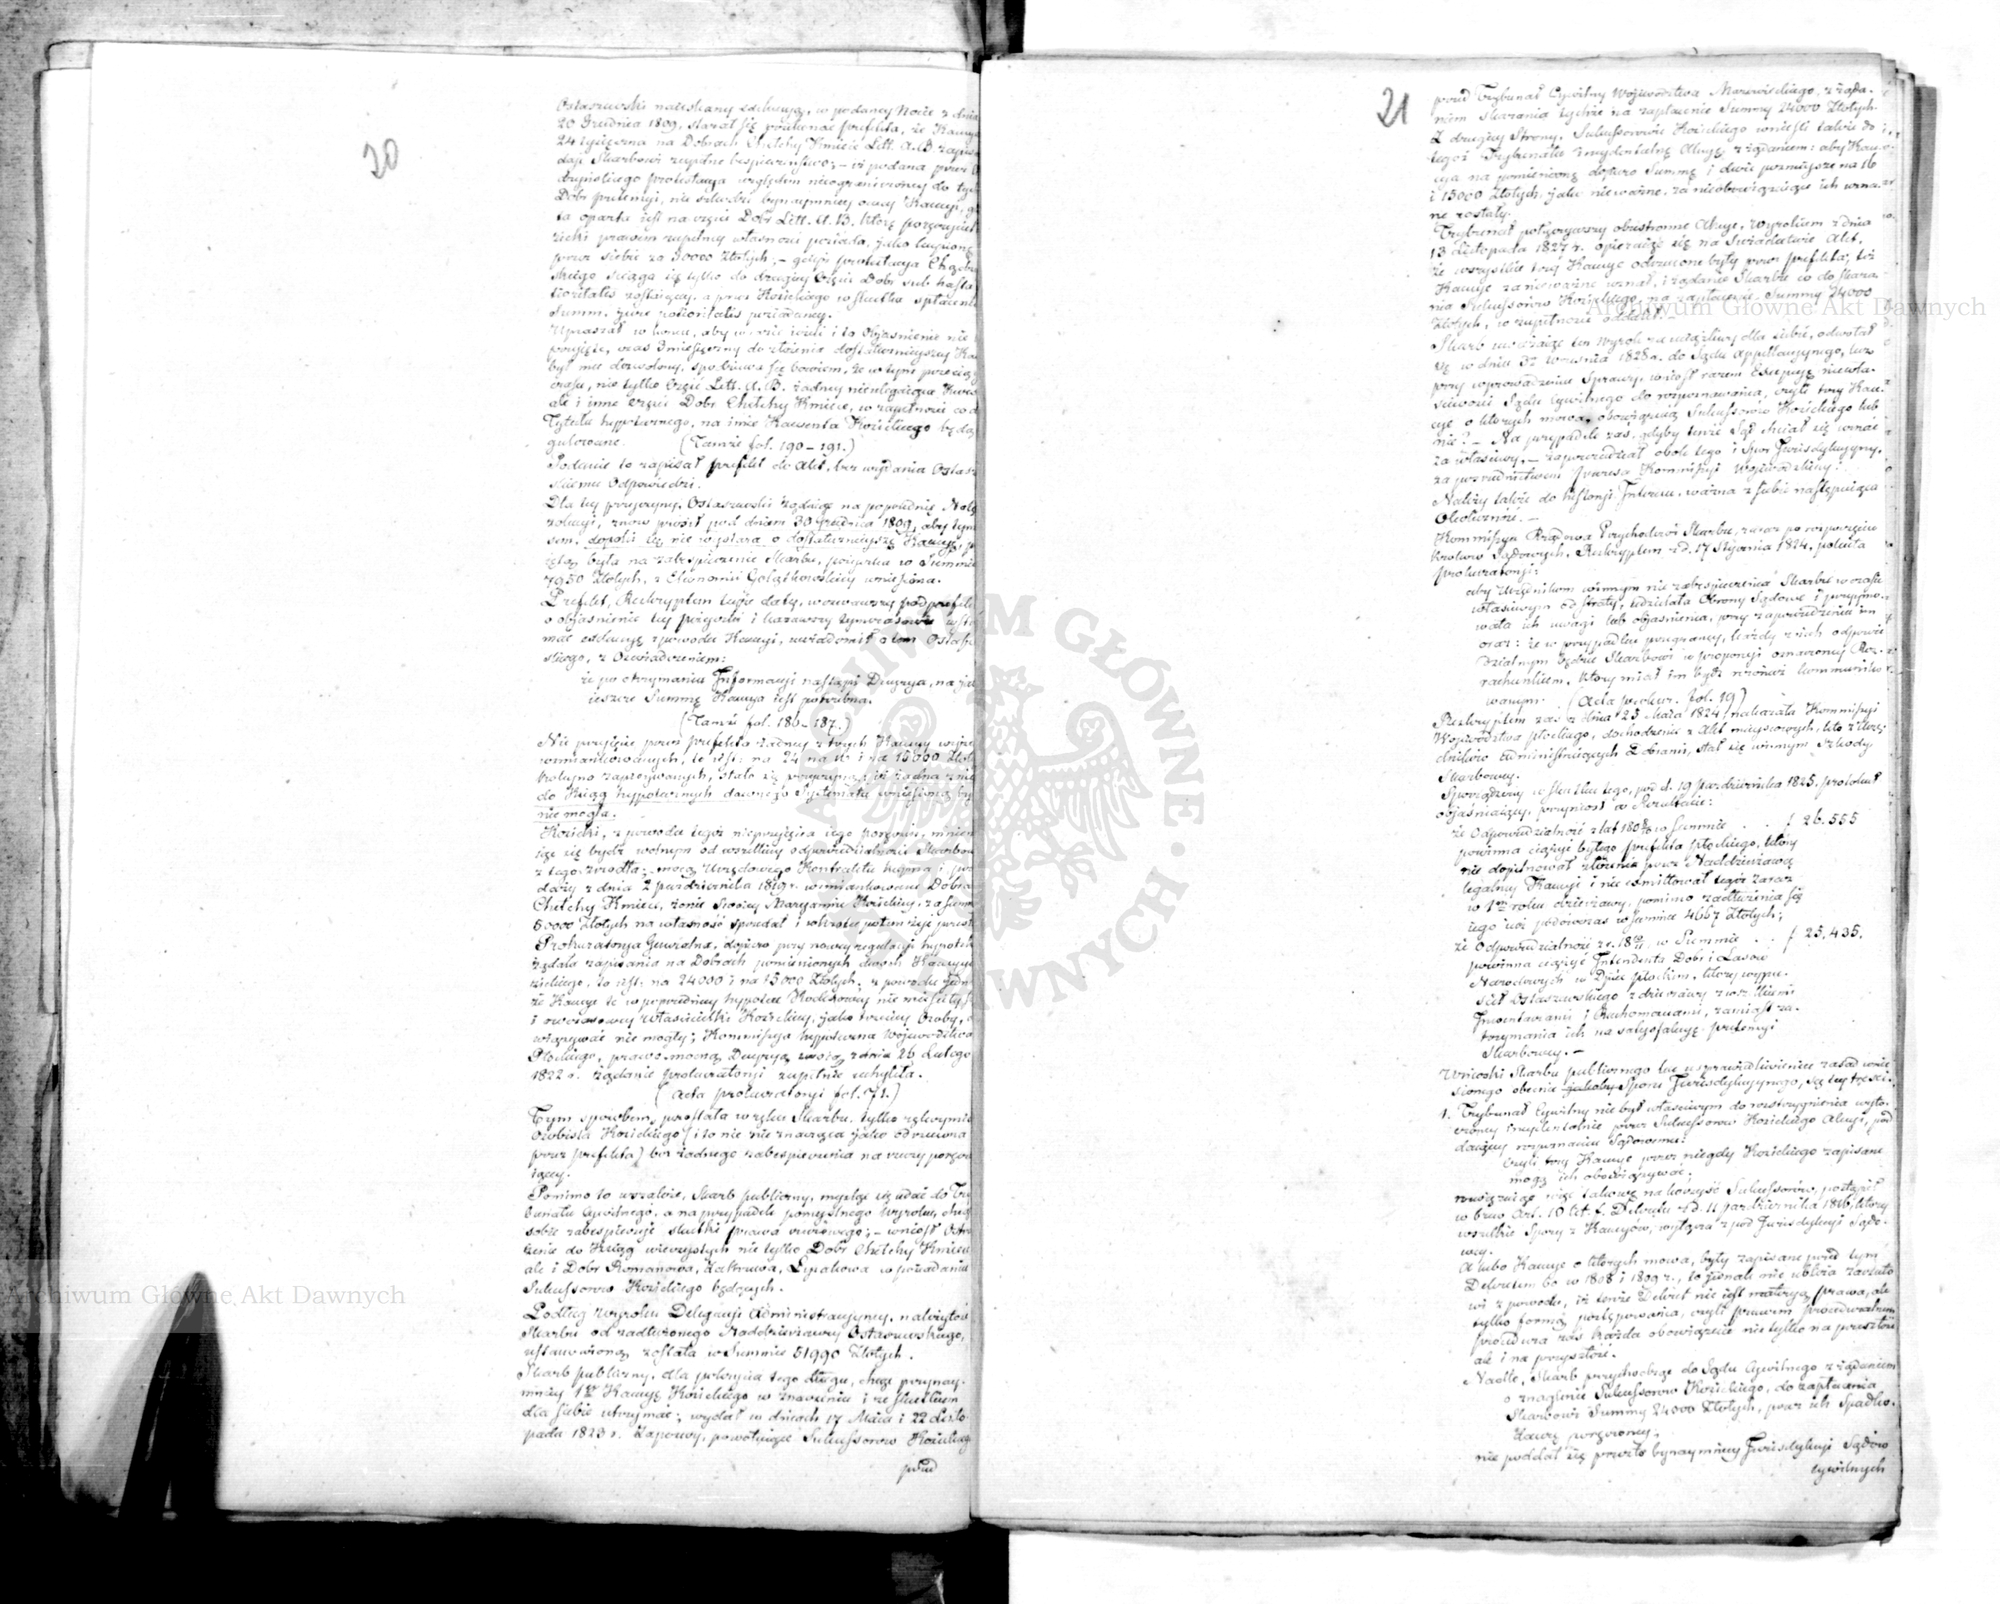 20
Ostaszewski naciskany exekucyą, w podaney Nocie z dnia
20 Grudnia 1809, starał się przekonać Prefekta, że Kaucya
24 tysięczna na Dobrach Chełchy Kmiece Litt. A. B. zapis
daje Skarbowi zupełne bespieczeństwo; – iż podana przez
Protestacya względem nieograniczoney do tych
Dobr pretensyi, nie szkodzi bynaymniey owey Kaucyi, g
ta oparta jest na części Dobr Litt. A. B. którą poręczyciel
zicki prawem zupełney własności posiada, jako kupioną
przez siebie za 30000 Złotych; – gdyż protestacya
skiego ściąga się tylko do drugiey Części Dobr sub hasta
zostaiącey, a przez Kozickiego w skutku spłacenia
Summ, jure prioritatis posiadaney.
Upraszał w końcu, aby w razie jeżeli i to Objaśnienie nie
przyjęte, czas 3 miesięczny do złożenia dostatecznieyszey Kau
był mu dozwolony, spodziewa się bowiem, że w tym przeciągu
czasu, nie tylko Część Litt. A. B. żadney nieulegaiąca
ale i inne części Dobr Chełchy Kmiece, w zupełności co do
Tytułu hypotecznego, na imie Kozickiego będą
gulowane. (Tamże fol. 190–191.)
Podanie to zapisał Prefekt do Akt, bez wydania Ostasz
skiemu Odpowiedzi.
Dla tey przyczyny, Ostaszewski żądaiąc na poprzednią Notę
zolucyi, znowu prosił pod dniem 30 Grudnia 1809, aby tym
sem, dopóki się nie wystara o dostatecznieyszą Kaucyę, p
iętą była na zabespieczenie Skarbu, pożyczka w Summie
7950 Złotych, z Ekonomii Golądkowskiey wniesiona.
Prefekt, Reskryptem teyże daty, wezwawszy podprefekta
o objaśnienie tey pożyczki i kazawszy tymczasowie wstrzy
mać exekucyę z powodu Kaucyi, uwiadomił o tem Ostasz
skiego, z Oświadczeniem:
że po otrzymaniu Informacyi nastąpi Decyzya, na jak
ieszcze Summę Kaucya jest potrzebna.
(Tamże fol. 186–187.)
Nie przyjęcie przez Prefekta żadney z trzech Kaucyy wyżey
wzmiankowanych, to jest: na 24 na 16 i na 15000 Złot
stało się przyczyną, iż żadna z nich
do Ksiąg hypotecznych dawnego Systematu wniesioną być
nie mogła.
Kozicki, z powodu tegoż nieprzyjęcia jego poręki, mniem
iąc się bydź wolnym od wszelkiey odpowiedzialności Skarbow
z tego źródła, – mocą Urzędowego Kontraktu kupna i prze
daży z dnia 2 Października 1819 r. wzmiankowane Dobra
Chełchy Kmiece, żonie swoiey Maryannie Kozickiey, za Summę
50000 Złotych na własność sprzedał i wkrótce potem żyć przestał
Prokuratorya Generalna, dopiero przy nowey regulacyi hypotek
żądała zapisania na Dobrach pomienionych dwóch Kaucyy
zickiego, to jest: na 24000 i na 15000 Złotych; z powodu jednak
że Kaucye te w poprzedniey hypotece Kodexowey nie mieściły się
i owczesowey Właścicielki Kozickiey, jako trzeciey Osoby,
wiązywać nie mogły; Kommissya hypoteczna Województwa
Płockiego, prawomocną Decyzyą swoią z dnia 26 Lutego
1822 r. żądanie Prokuratoryi zupełnie uchyliła.
(Acta Prokuratoryi fol. 71.)
Tym sposobem, pozostała w ręku Skarbu, tylko rękoymia
Osobista Kozickiego (i to nic nie znacząca jako odrzucona
przez Prefekta) bez żadnego zabespieczenia na rzeczy poręcza
iącey.
Pomimo to wszakże, Skarb publiczny, mysląc się udać do Try
bunału Cywilnego, a na przypadek pomyślnego Wyroku, chcąc
sobie zabespieczyć skutki prawa rzeczowego; – wniosł Ostrze
żenie do Ksiąg wieczystych nie tylko Dobr Chełchy Kmiece
ale i Dobr Romanowa, Zakrzewa, Lipakowa w posiadaniu
Sukcessorow Kozickiego będących.
Podług Wyroku Delegacyi Administracyiney, należytość
Skarbu od zadłużonego Naddzierżawcy Ostaszewskiego,
ustanowioną została w Summie 51990 Złotych.
Skarb publiczny, dla pokrycia tego długu, chcąc przynay-
mniey 1szą Kaucyę Kozickiego w znaczeniu i ze skutkiem
dla siebie utrzymać; wydał w dniach 17 Maia i 22 Listo-
pada 1823 r. Zapozwy, powołuiące Sukcessorow Kozickiego
przed
21
przed Trybunał Cywilny Województwa Mazowieckiego, z żąda-
niem skazania tychże na zapłacenie Summy 24000 Złotych.
Z drugiey Strony, Sukcessorowie Kozickiego wnieśli także do
tegoż Trybunału incydentalną Akcyę, z żądaniem: aby Kau-
cya na pomienioną dopiero Summę i dwie pomnieysze na 16
i 15000 Złotych, jako nieważne, za nieobowiązuiące ich uzna-
ne zostały.
Trybunał połączywszy obustronne Akcye, Wyrokiem z dnia
13 Listopada 1827 r. opieraiąc się na świadectwie Akt,
że wszystkie trzy Kaucye odrzucone były przez Prefekta; też
Kaucye za nieważne uznał, i żądanie Skarbu co do skaza-
nia Sukcessorów Kozickiego na zapłacenie Summy 24000
Złotych, w zupełności oddalił. –
Skarb uważaiąc ten Wyrok za uciążliwy dla siebie, odwołał
się w dniu Września 1828 r. do Sądu Appellacyinego, lecz
przy wprowadzeniu Sprawy, wniosł razem Excepcyę niewła-
ściwości Sądu Cywilnego do rozpoznawania, czyli trzy Kau-
cye o których mowa, obowiązuią Sukcessorów Kozickiego lub
nie? – Na przypadek zas, gdyby tenże Sąd chciał się uznać
za właściwy, – zapowiedział obok tego i Spor Jurisdykcyiny,
za pośrednictwem Prezesa Kommissyi Woiewódzkiey.
Należy także do historyi Interessu, ważna z siebie następuiąca
Okoliczność. –
Kommissya Rządowa Przychodów i Skarbu, zaraz po rozpoczęciu
kroków Sądowych, Reskryptem z d. 17 Stycznia 1824, poleciła
Prokuratoryi:
aby Urzędnikom winnym nie zabespieczenia Skarbu w czasie
właściwym od straty, udzielała Obrony Sądowe i przyymo-
wała ich uwagi lub objaśnienia, przy zapowiedzeniu im
oraz: że w przypadku przegraney, każdy z nich odpowie-
dzialnym będzie Skarbowi w proporcyi oznaczoney Roz-
rachunkiem, który miał im bydź również kommuniko-
wanym. (Acta prokur. fol. 19)
Reskryptem zas z dnia 25 Maia 1824, nakazała Kommissyi
Województwa Płockiego, dochodzenie z Akt mieyscowych, kto z Urzę-
dników administruiących Dobrami, stał się winnym Szkody
Skarbowey.
Sporządzony w skutku tego, pod d. 19 Października 1825, protokuł
objaśniaiący, przyniosł w Rezultacie:
że Odpowiedzialność z lat 1808/10 w Summie . . f 26.555
powinna ciążyć byłego Prefekta Płockiego, który
nie dopilnował złożenia przez Naddzierżawcę
legalney Kaucyi i nie exmittował tegoż zaraz
w 1ym roku dzierżawy, pomimo zadłużenia się
jego już podówczas w Summie 4667 Złotych;
że Odpowiedzialność z r. 1810/11 w Summie . . f 25.435.
powinna ciążyć Intendenta Dobr i Lasow
Narodowych w Dptcie Płockim, który wypu-
ścił Ostaszewskiego z dzierżawy z wszelkiemi
Inwentarzami i Ruchomosciami, zamiast za-
trzymania ich na satysfakcyę pretensyi
Skarbowey. –
Wnioski Skarbu publicznego ku usprawiedliwieniu zasad wnie-
sionego obecnie Sporu Jurisdykcyinego, są tey treści:
1. Trybunał Cywilny nie był właściwym do rozstrzygnienia wyto-
czoney incydentalnie przez Sukcessorow Kozickiego Akcyi, pod-
daiącey rozpoznaniu Sądowemu:
czyli trzy Kaucye przez niegdy Kozickiego zapisane
mogą ich obowiązywać;
rozwiązuiąc więc takową na korzyść Sukcessorów, postąpił
wbrew Art. 10 lit. f. Dekretu z d. 11 Października 1816, który
wszelkie Spory z Kaucyów, wyłącza z pod Jurisdykcyi Sądo-
wey.
A lubo Kaucye o których mowa, były zapisane przed tym
Dekretem bo w 1808 i 1809 r., to jednak nie ubliża zarzuto-
wi z powodu, iż tenże Dekret nie jest materyą prawa, ale
tylko formą postępowania, czyli prawem proceduralnem
procedura zas każda obowiązuie nie tylko na przeszłość
ale i na przyszłość.
Nadto, Skarb przychodząc do Sądu Cywilnego z żądaniem
o znaglenie Sukcessorow Kozickiego, do zapłacenia
Skarbowi Summy 24000 Złotych, przez ich Spadko-
dawcę poręczoney;
nie poddał się przez to bynaymniey Jurisdykcyi Sądów
cywilnych
Archiwum Główne Akt Dawnych
Archiwum Główne Akt Dawnych
ARCHIWUM GŁÓWNE AKT DAWNYCH